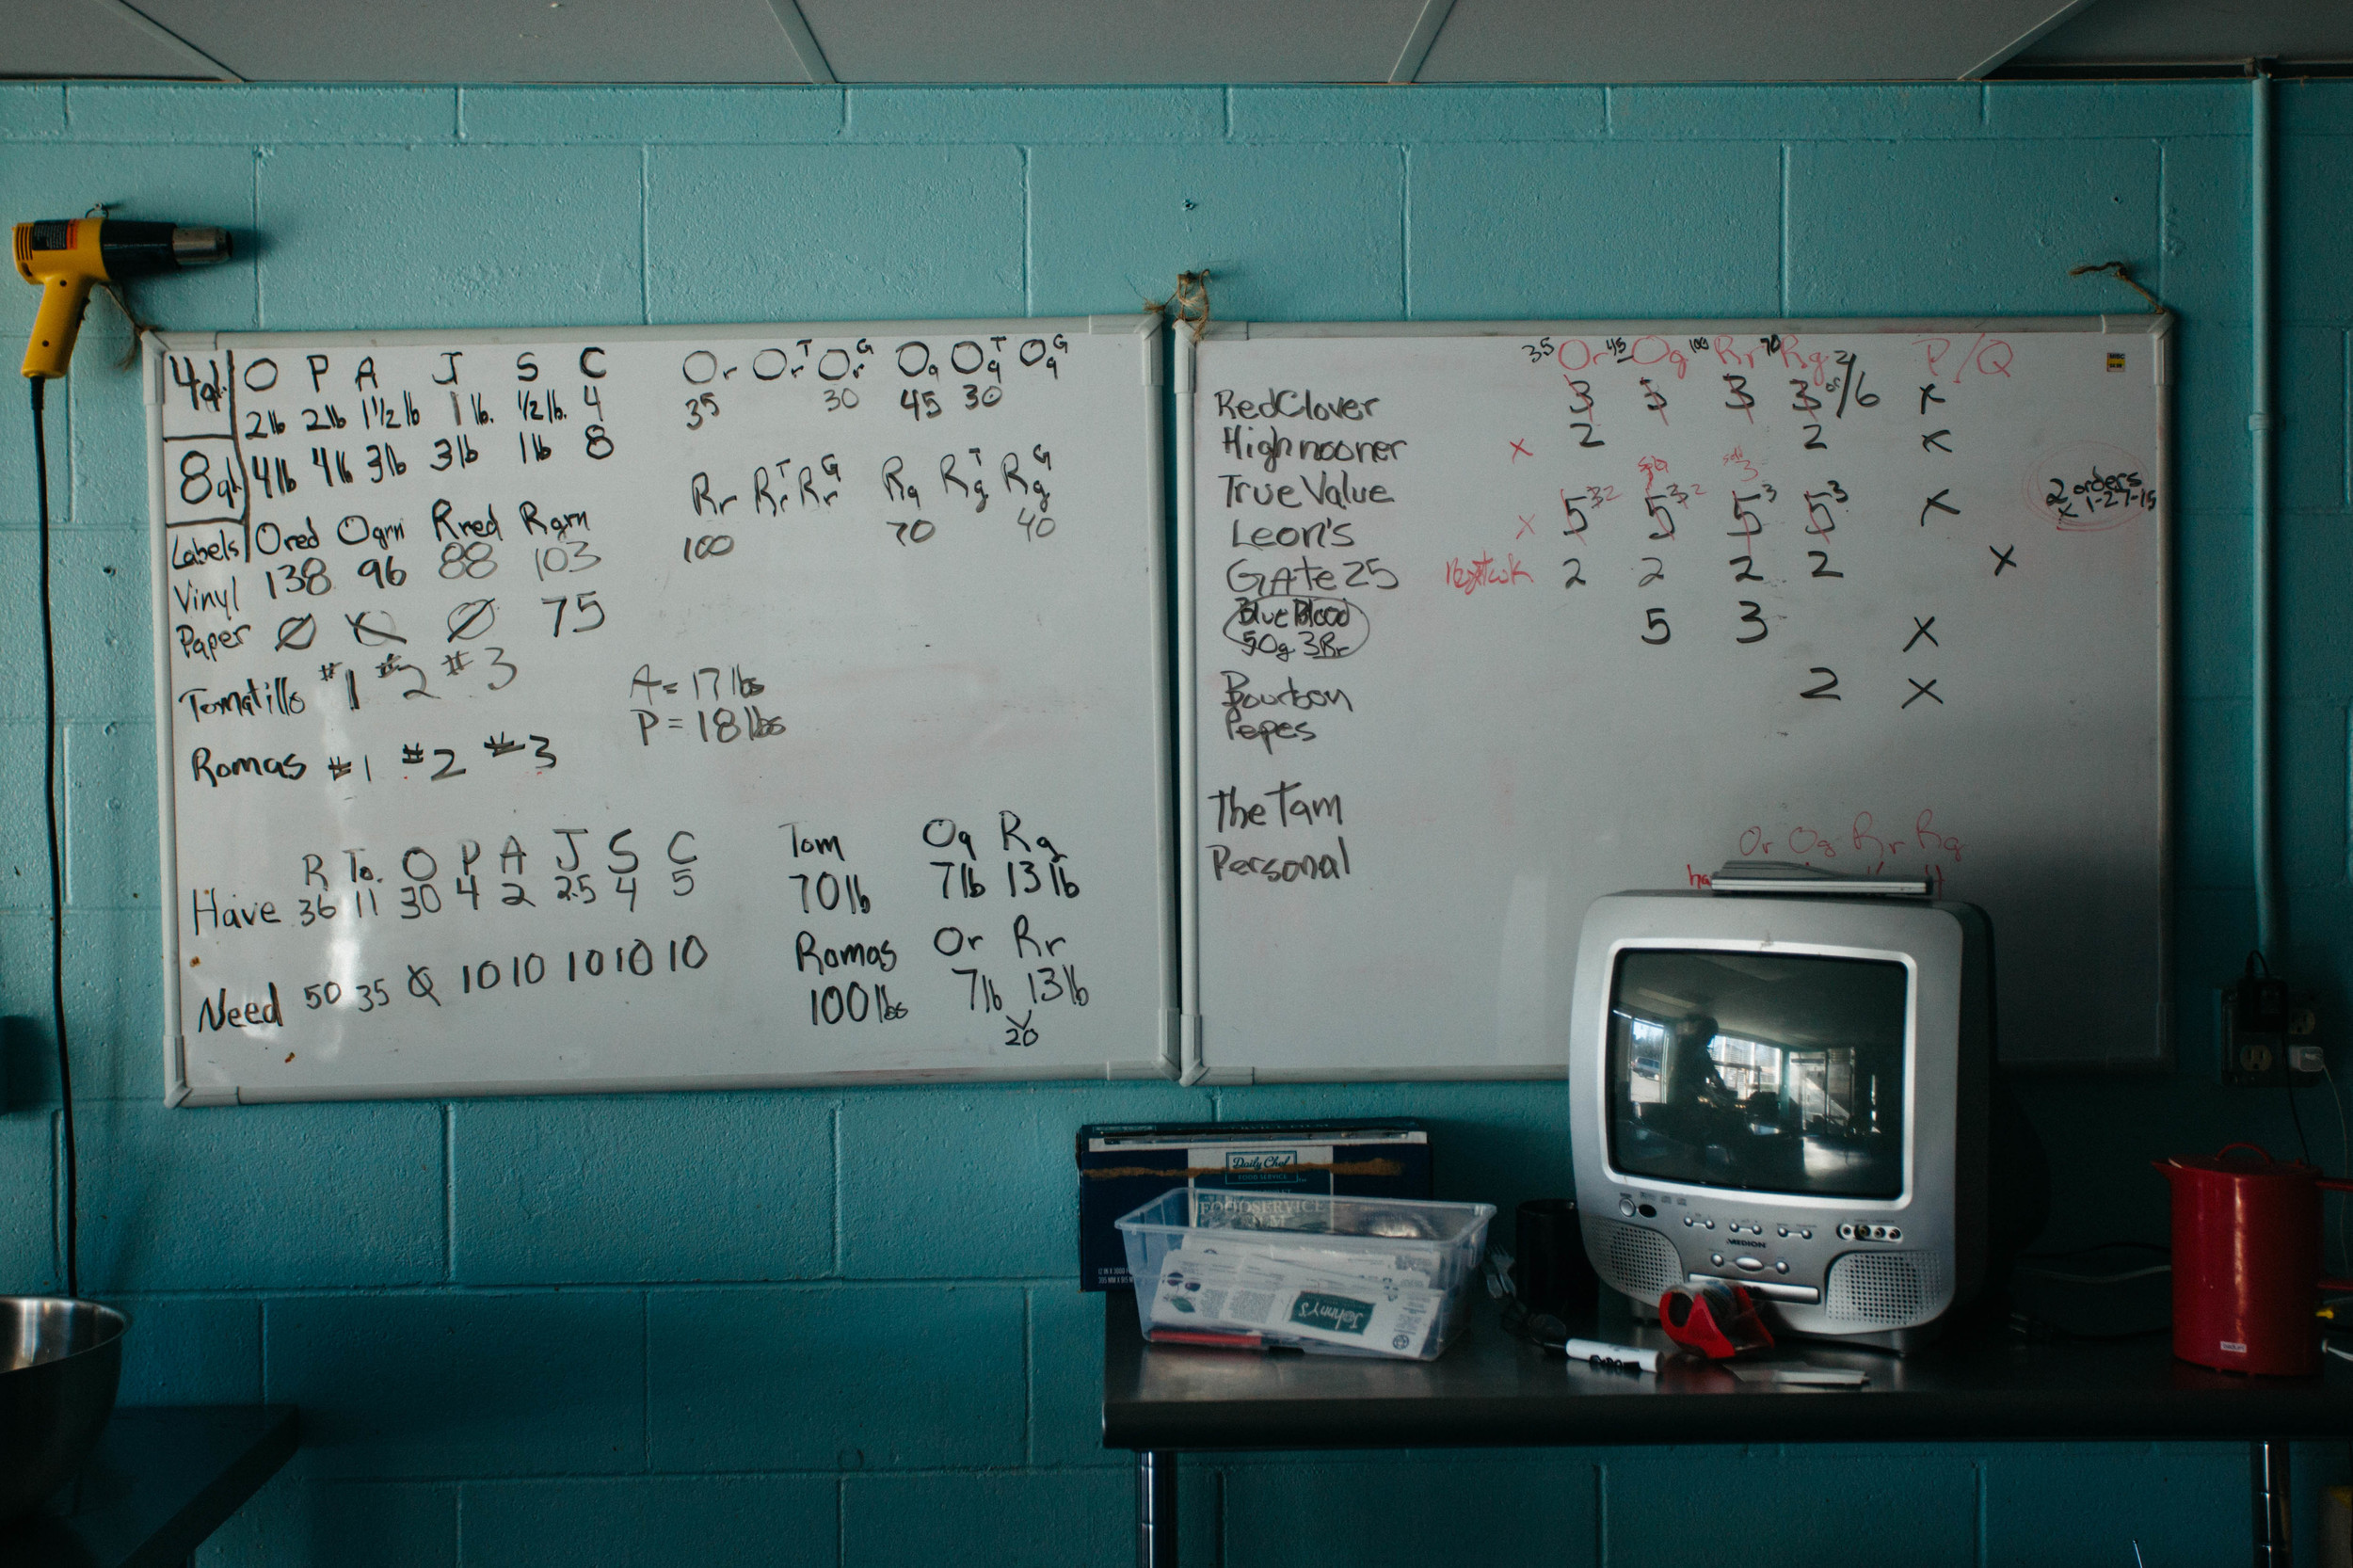 4qt O P A J S C
2lb 2lb 1 1/2 lb 1 lb. 1/2 lb. 4
8qt 4lb 4lb 3lb 3lb 1lb 8
Labels Ored Ogrn Rred Rgrn
Vinyl 138 96 88 103
Paper Ø Ø Ø 75
Tomatillo #1 #2 #3
Romas #1 #2 #3
Or Or^T Or^G Og Og^T Og^G
35 30 45 30
Rr Rr^T Rr^G Rg Rg^T Rg^G
100 70 40
A = 17 lbs
P = 18 lbs
R To. O P A J S C
Have 36 11 30 4 2 2.5 4 5
Need 50 35 Ø 10 10 10 10 10
Tom Og Rg
70lb 7lb 13lb
Romas Or Rr
100lbs 7lb 13lb
20
35 Or 45 Og 100 Rr 70 Rg P/Q
RedClover 3 3 3 3 x
Highnooner x 2 2 x
True Value
Leon's x 5 3 2 5 3 2 5 3 5 3 x
2 orders
x 1-27-15
GAte 25 2 2 2 2 x
Blue Blood 5 3 x
5Og 3Rr
Bourbon 2 x
Pepes
The Tam
Personal
Or Og Rr Rg
Daily Chef
FOOD SERVICE
FOODSERVICE
FILM
Johnny's
MEDION